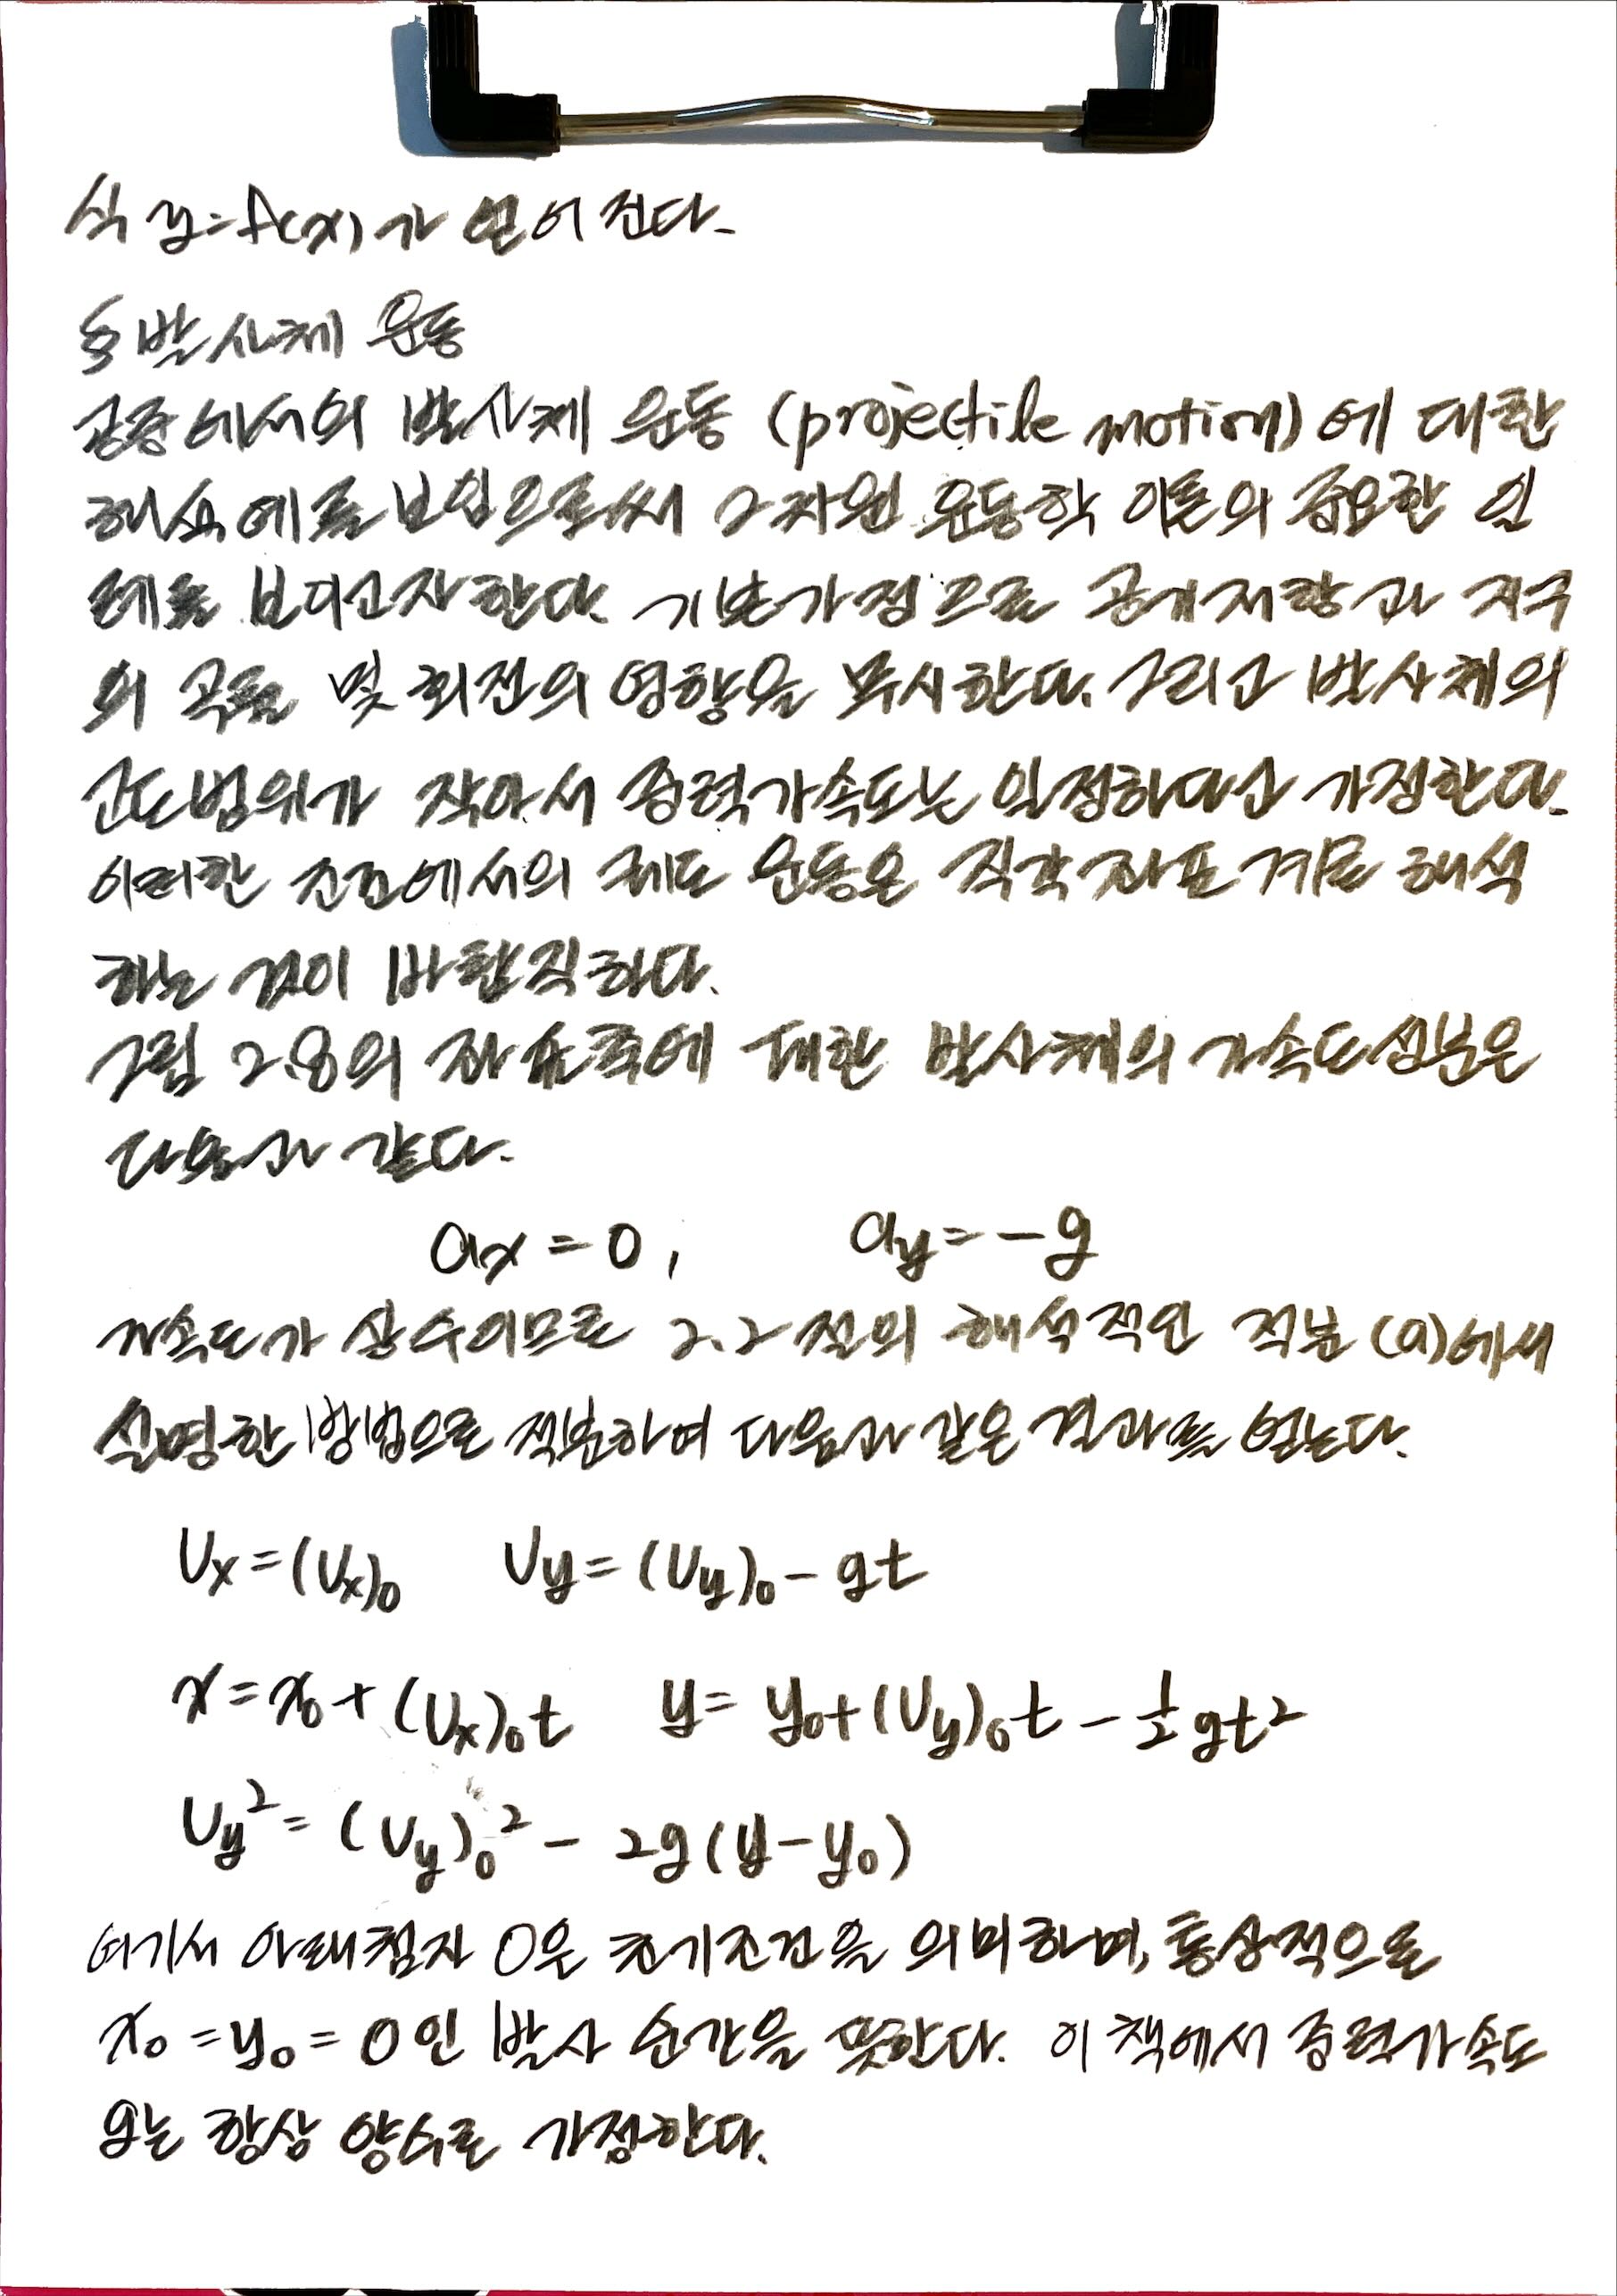 식 y=f(x)가 얻어진다.
§ 발사체 운동
공중에서의 발사체 운동 (projectile motion)에 대한
해석 예를 보임으로써 2차원 운동학 이론의 중요한 일
례를 보이고자 한다. 기본가정으로 공기저항과 지구
의 곡률 및 회전의 영향을 무시한다. 그리고 발사체의
고도범위가 작아서 중력가속도는 일정하다고 가정한다.
이러한 조건에서의 궤도 운동은 직각좌표계로 해석
하는 것이 바람직하다.
그림 2.8의 좌표축에 대한 발사체의 가속도성분은
다음과 같다.
ax = 0, ay = -g
가속도가 상수이므로 2.2절의 해석적인 적분 (a)에서
설명한 방법으로 적분하여 다음과 같은 결과를 얻는다.
Ux = (Ux)0 Uy = (Uy)0 - gt
x = x0 + (Ux)0t y = y0 + (Uy)0t - 1/2 gt²
Uy² = (Uy)0² - 2g(y-y0)
여기서 아래첨자 0은 초기조건을 의미하며, 통상적으로
x0 = y0 = 0인 발사 순간을 뜻한다. 이 책에서 중력가속도
g는 항상 양수로 가정한다.